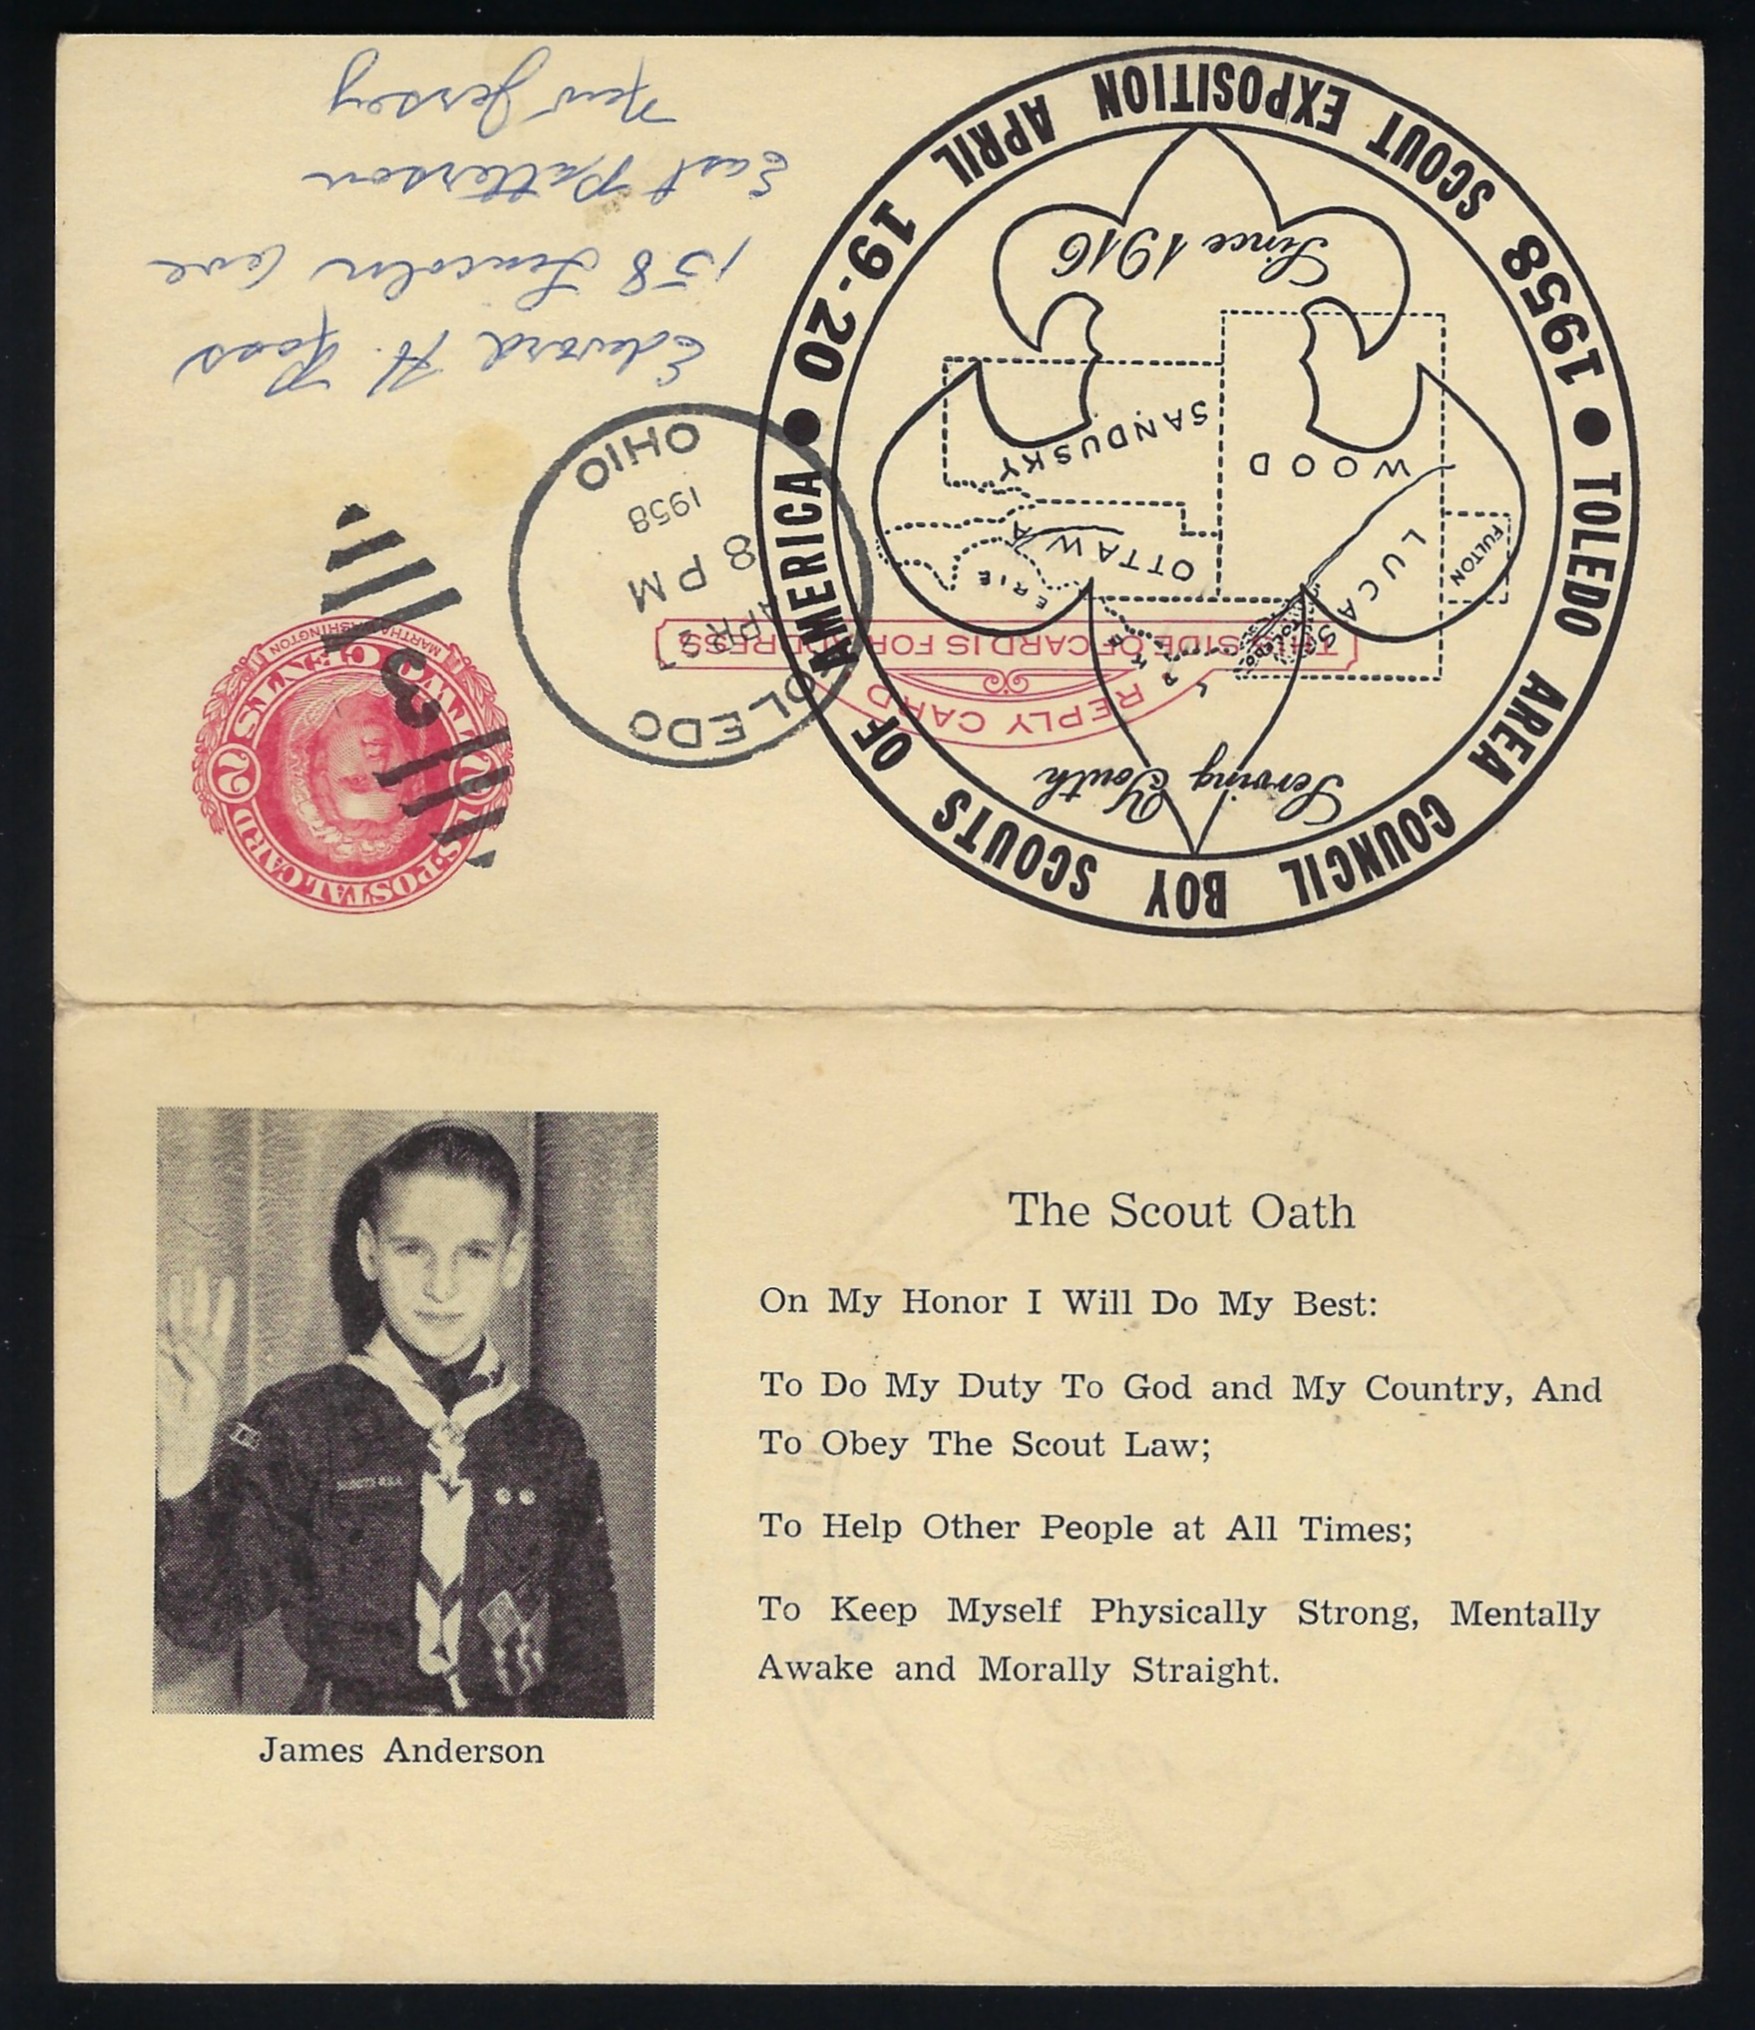 TOLEDO AREA COUNCIL BOY SCOUTS OF AMERICA
19-20 APRIL EXPOSITION SCOUT 1958
Serving Youth
LUCAS
TOLEDO
FULTON
WOOD
OTTAWA
ERIE
SANDUSKY
Since 1916
REPLY CARD
THIS SIDE OF CARD IS FOR ADDRESS
TOLEDO
APR
8 PM
1958
OHIO
3
U.S. POSTAL CARD
2 TWO CENTS 2
MARTHA WASHINGTON
Edward H. Roos
158 Lincoln Ave
East Patterson
New Jersey
The Scout Oath
On My Honor I Will Do My Best:
To Do My Duty To God and My Country, And
To Obey The Scout Law;
To Help Other People at All Times;
To Keep Myself Physically Strong, Mentally
Awake and Morally Straight.
James Anderson